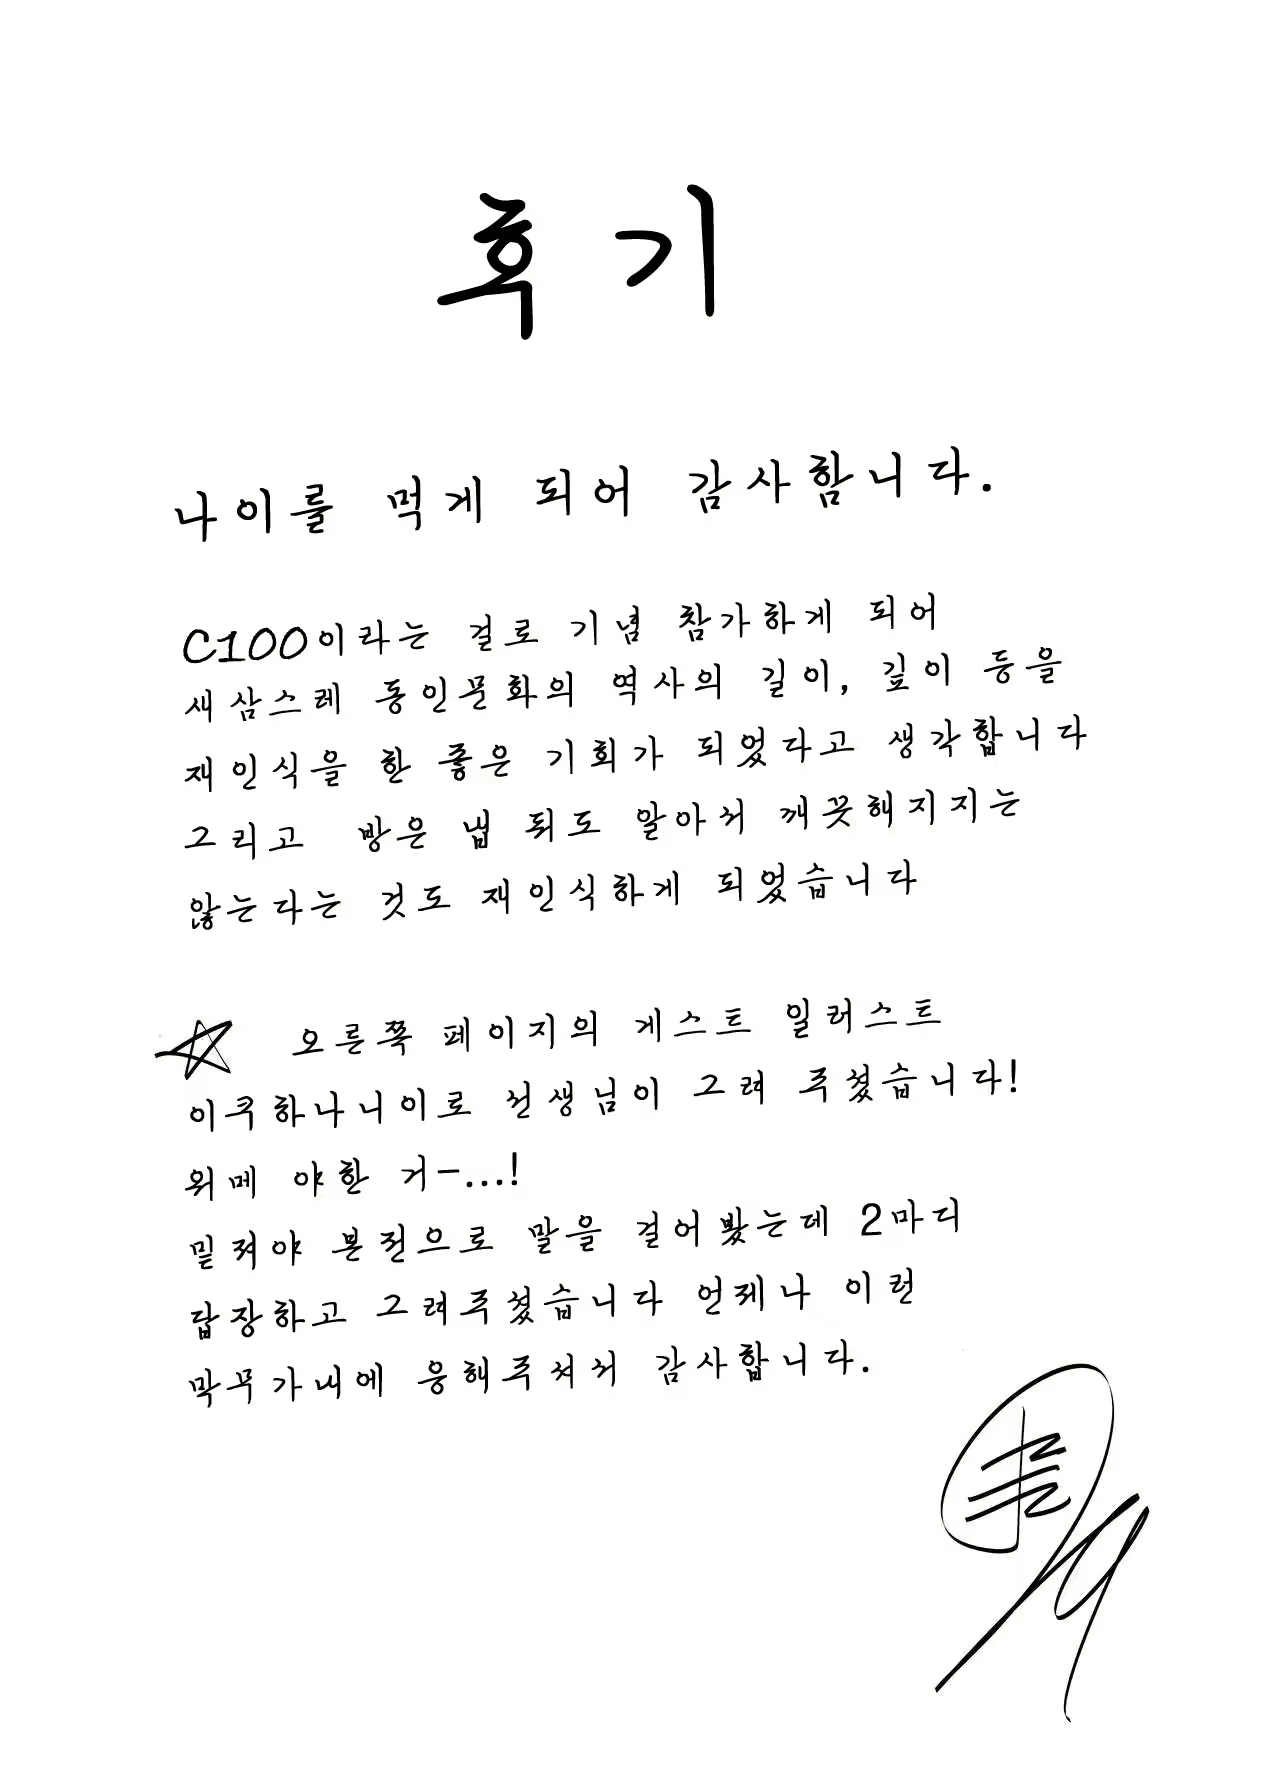 후기
나이를 먹게 되어 감사함니다.
C100이라는 걸로 기념 참가하게 되어
새삼스레 동인문화의 역사의 길이, 깊이 등을
재인식을 한 좋은 기회가 되었다고 생각합니다
그리고 방은 냅둬도 알아서 깨끗해지지는
않는다는 것도 재인식하게 되었습니다
오른쪽 페이지의 게스트 일러스트
이쿠하나니이로 선생님이 그려 주셨습니다!
위메 야한 거-...!
밑져야 본전으로 말을 걸어봤는데 2마디
답장하고 그려주셨습니다 언제나 이런
막무가내에 응해주셔서 감사합니다.